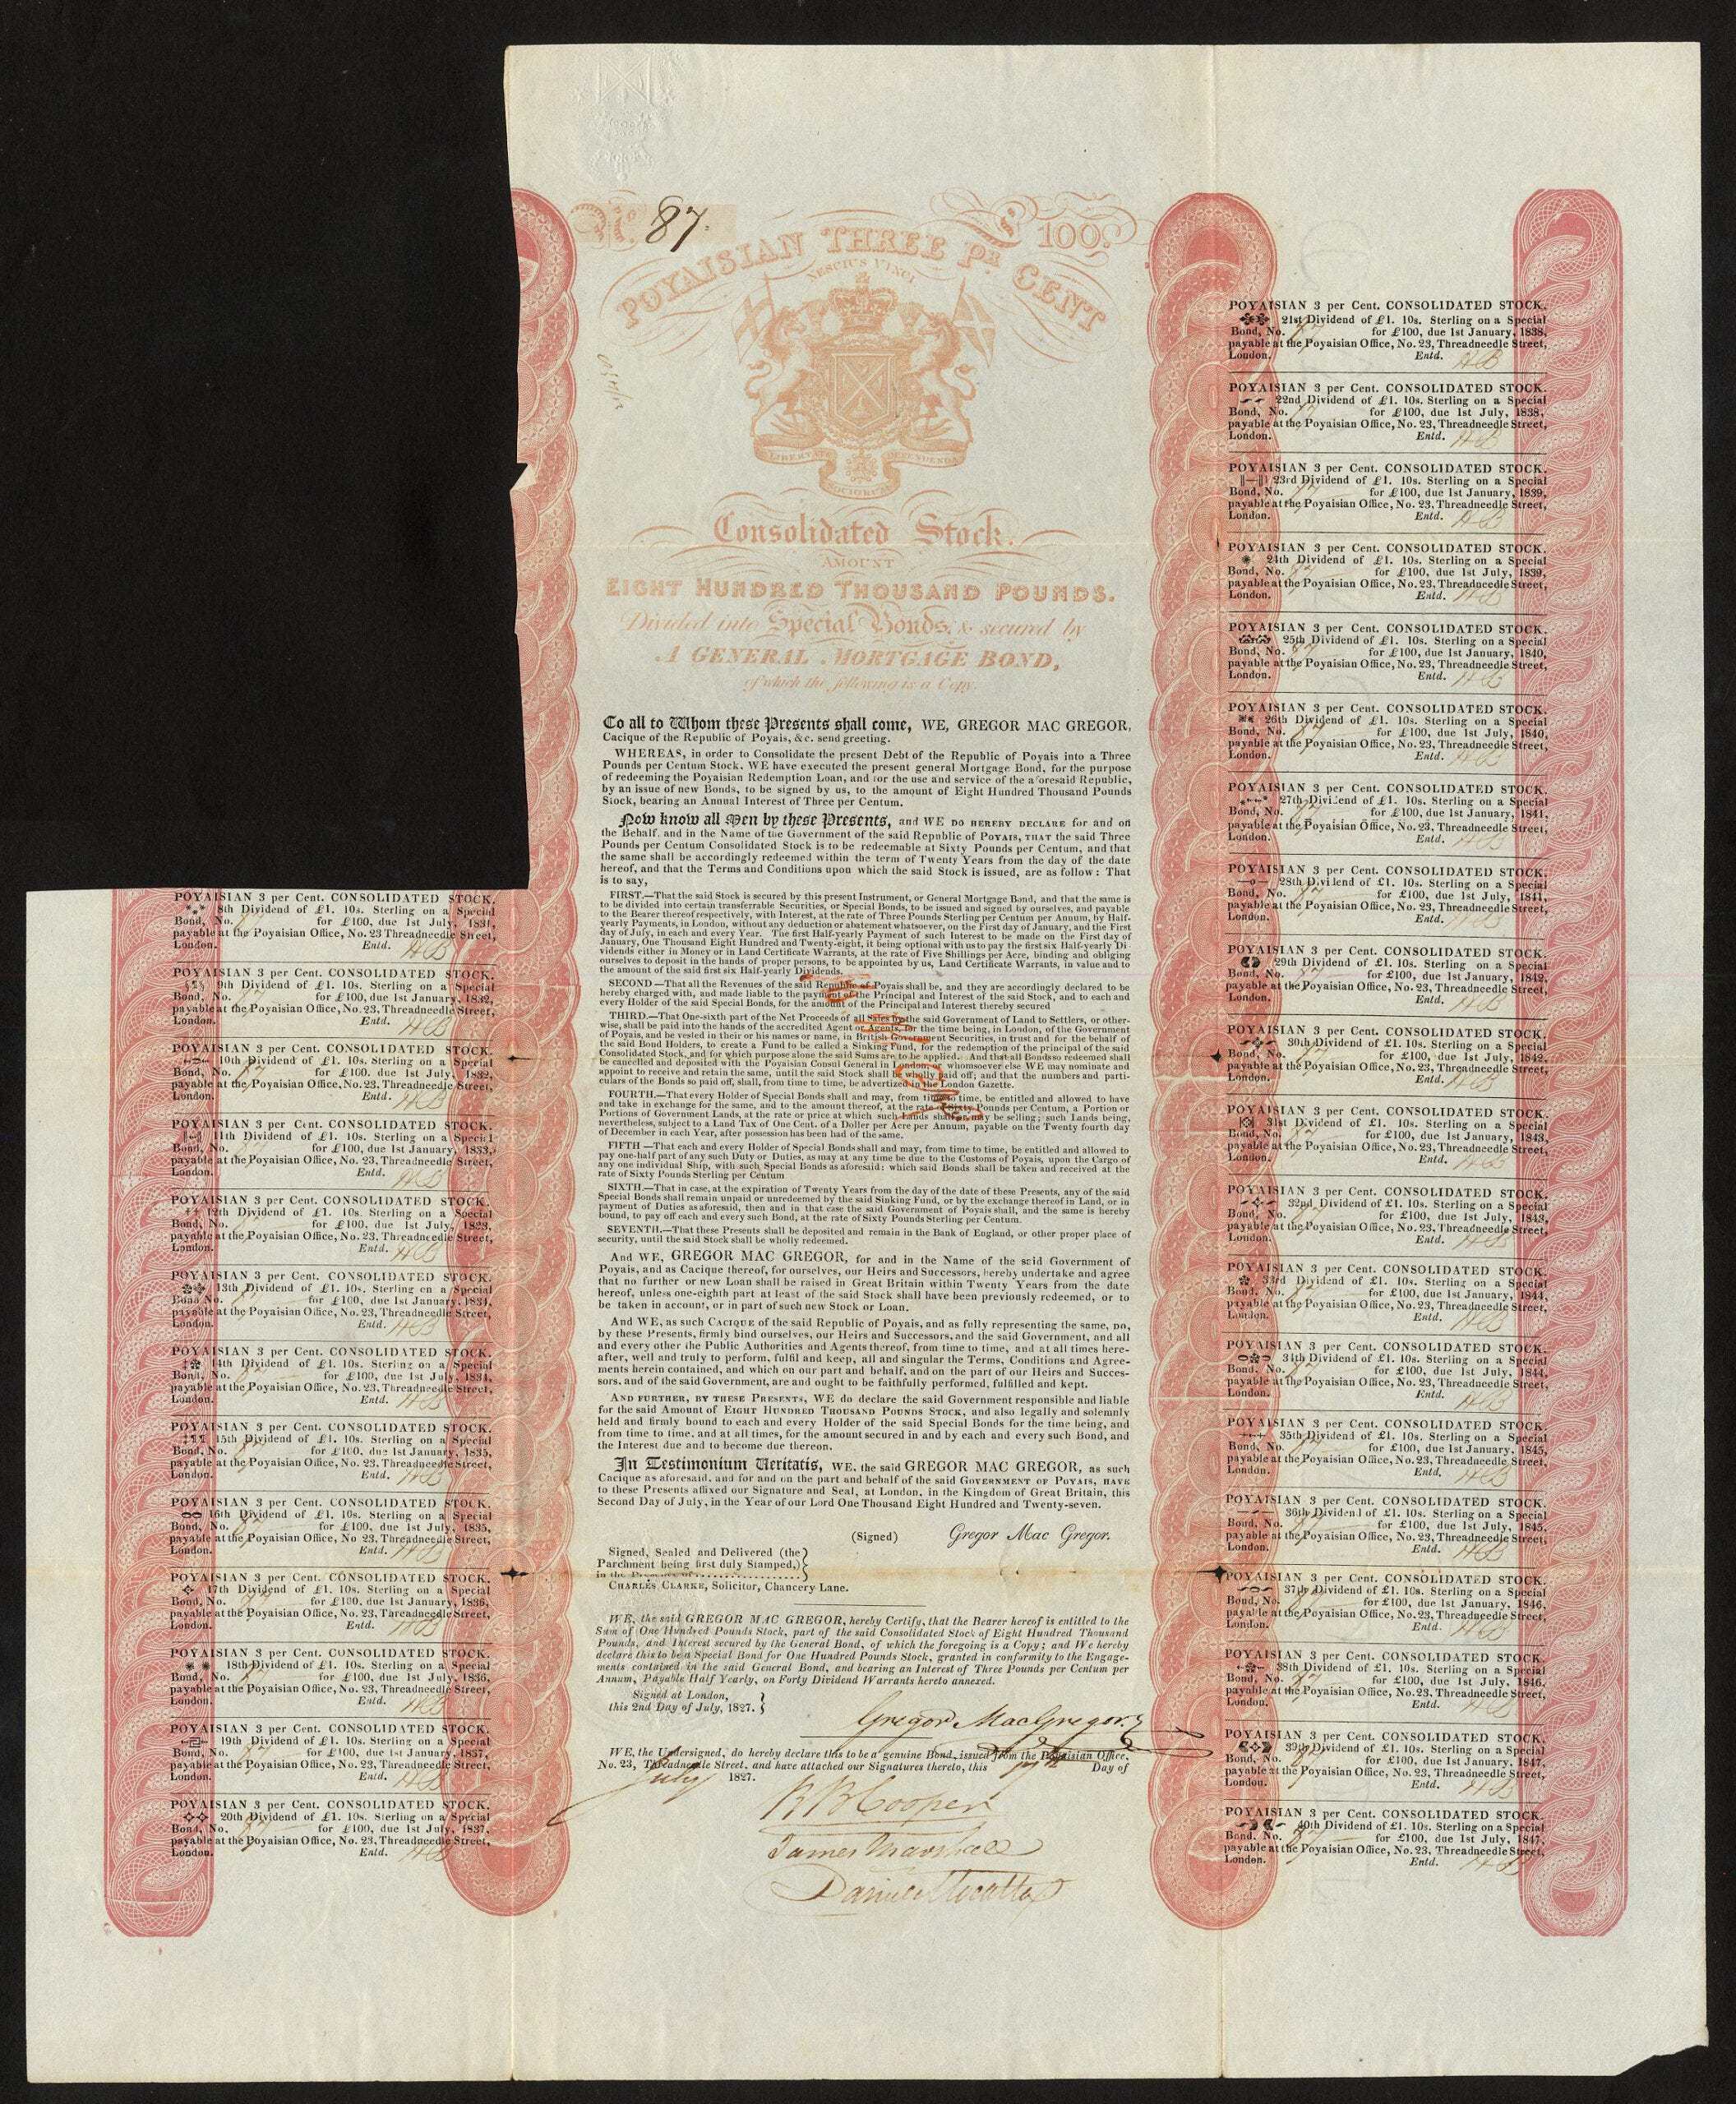 No. 87.
£ 100.
POYAISIAN THREE PR. CENT
NESCIUS VINCI
LIBERTATE DEFENDENDA
SOCIORUM
Consolidated Stock.
AMOUNT
EIGHT HUNDRED THOUSAND POUNDS.
Divided into Special Bonds, & secured by
A GENERAL MORTGAGE BOND,
of which the following is a Copy.
To all to Whom these Presents shall come, WE, GREGOR MAC GREGOR,
Cacique of the Republic of Poyais, &c. send greeting.
WHEREAS, in order to Consolidate the present Debt of the Republic of Poyais into a Three
Pounds per Centum Stock, WE have executed the present general Mortgage Bond, for the purpose
of redeeming the Poyaisian Redemption Loan, and for the use and service of the aforesaid Republic,
by an issue of new Bonds, to be signed by us, to the amount of Eight Hundred Thousand Pounds
Stock, bearing an Annual Interest of Three per Centum.
Now know all Men by these Presents, and WE DO HEREBY DECLARE for and on
the Behalf, and in the Name of the Government of the said Republic of POYAIS, THAT the said Three
Pounds per Centum Consolidated Stock is to be redeemable at Sixty Pounds per Centum, and that
the same shall be accordingly redeemed within the term of Twenty Years from the day of the date
hereof, and that the Terms and Conditions upon which the said Stock is issued, are as follow: That
is to say,
FIRST.—That the said Stock is secured by this present Instrument, or General Mortgage Bond, and that the same is
to be divided into certain transferrable Securities, or Special Bonds, to be issued and signed by ourselves, and payable
to the Bearer thereof respectively, with Interest, at the rate of Three Pounds Sterling per Centum per Annum, by Half-
yearly Payments, in London, without any deduction or abatement whatsoever, on the First day of January, and the First
day of July, in each and every Year. The first Half-yearly Payment of such Interest to be made on the First day of
January, One Thousand Eight Hundred and Twenty-eight, it being optional with us to pay the first six Half-yearly Di-
vidends either in Money or in Land Certificate Warrants, at the rate of Five Shillings per Acre, binding and obliging
ourselves to deposit in the hands of proper persons, to be appointed by us, Land Certificate Warrants, in value and to
the amount of the said first six Half-yearly Dividends.
SECOND—That all the Revenues of the said Republic of Poyais shall be, and they are accordingly declared to be
hereby charged with, and made liable to the payment of the Principal and Interest of the said Stock, and to each and
every Holder of the said Special Bonds, for the amount of the Principal and Interest thereby secured
THIRD.—That One-sixth part of the Net Proceeds of all Sales by the said Government of Land to Settlers, or other-
wise, shall be paid into the hands of the accredited Agent or Agents, for the time being, in London, of the Government
of Poyais, and be vested in their or his names or name, in British Government Securities, in trust and for the behalf of
the said Bond Holders, to create a Fund to be called a Sinking Fund, for the redemption of the principal of the said
Consolidated Stock, and for which purpose alone the said Sums are to be applied. And that all Bonds so redeemed shall
be cancelled and deposited with the Poyaisian Consul General in London, or whomsoever else WE may nominate and
appoint to receive and retain the same, until the said Stock shall be wholly paid off; and that the numbers and parti-
culars of the Bonds so paid off, shall, from time to time, be advertized in the London Gazette.
FOURTH.—That every Holder of Special Bonds shall and may, from time to time, be entitled and allowed to have
and take in exchange for the same, and to the amount thereof, at the rate of Sixty Pounds per Centum, a Portion or
Portions of Government Lands, at the rate or price at which such Lands shall or may be selling; such Lands being,
nevertheless, subject to a Land Tax of One Cent. of a Doller per Acre per Annum, payable on the Twenty fourth day
of December in each Year, after possession has been had of the same.
FIFTH—That each and every Holder of Special Bonds shall and may, from time to time, be entitled and allowed to
pay one-half part of any such Duty or Duties, as may at any time be due to the Customs of Poyais, upon the Cargo of
any one individual Ship, with such Special Bonds as aforesaid: which said Bonds shall be taken and received at the
rate of Sixty Pounds Sterling per Centum
SIXTH.—That in case, at the expiration of Twenty Years from the day of the date of these Presents, any of the said
Special Bonds shall remain unpaid or unredeemed by the said Sinking Fund, or by the exchange thereof in Land, or in
payment of Duties as aforesaid, then and in that case the said Government of Poyais shall, and the same is hereby
bound, to pay off each and every such Bond, at the rate of Sixty Pounds Sterling per Centum.
SEVENTH.—That these Presents shall be deposited and remain in the Bank of England, or other proper place of
security, until the said Stock shall be wholly redeemed.
And WE, GREGOR MAC GREGOR, for and in the Name of the said Government of
Poyais, and as Cacique thereof, for ourselves, our Heirs and Successors, hereby undertake and agree
that no further or new Loan shall be raised in Great Britain within Twenty Years from the date
hereof, unless one-eighth part at least of the said Stock shall have been previously redeemed, or to
be taken in account, or in part of such new Stock or Loan.
And WE, as such CACIQUE of the said Republic of Poyais, and as fully representing the same, DO,
by these Presents, firmly bind ourselves, our Heirs and Successors, and the said Government, and all
and every other the Public Authorities and Agents thereof, from time to time, and at all times here-
after, well and truly to perform, fulfil and keep, all and singular the Terms, Conditions and Agree-
ments herein contained, and which on our part and behalf, and on the part of our Heirs and Succes-
sors, and of the said Government, are and ought to be faithfully performed, fulfilled and kept.
AND FURTHER, BY THESE PRESENTS, WE do declare the said Government responsible and liable
for the said Amount of EIGHT HUNDRED THOUSAND POUNDS STOCK, and also legally and solemnly
held and firmly bound to each and every Holder of the said Special Bonds for the time being, and
from time to time, and at all times, for the amount secured in and by each and every such Bond, and
the Interest due and to become due thereon.
In Testimonium Veritatis, WE, the said GREGOR MAC GREGOR, as such
Cacique as aforesaid, and for and on the part and behalf of the said GOVERNMENT OF POYAIS, HAVE
to these Presents affixed our Signature and Seal, at London, in the Kingdom of Great Britain, this
Second Day of July, in the Year of our Lord One Thousand Eight Hundred and Twenty-seven.
(Signed) Gregor Mac Gregor.
Signed, Sealed and Delivered (the
Parchment being first duly Stamped,)
in the Presence of
CHARLES CLARKE, Solicitor, Chancery Lane.
WE, the said GREGOR MAC GREGOR, hereby Certify, that the Bearer hereof is entitled to the
Sum of One Hundred Pounds Stock, part of the said Consolidated Stock of Eight Hundred Thousand
Pounds, and Interest secured by the General Bond, of which the foregoing is a Copy; and We hereby
declare this to be a Special Bond for One Hundred Pounds Stock, granted in conformity to the Engage-
ments contained in the said General Bond, and bearing an Interest of Three Pounds per Centum per
Annum, Payable Half Yearly, on Forty Dividend Warrants hereto annexed.
Signed at London,
this 2nd Day of July, 1827.
Gregor MacGregor.
WE, the Undersigned, do hereby declare this to be a genuine Bond, issued from the Poyaisian Office,
No. 23, Threadneedle Street, and have attached our Signatures thereto, this Day of
July 1827.
R B Cooper
James Marshall
Daniel Mocatta
POYAISIAN 3 per Cent. CONSOLIDATED STOCK.
8th Dividend of £1. 10s. Sterling on a Special
Bond, No. 87 for £100, due 1st July, 1831,
payable at the Poyaisian Office, No. 23 Threadneedle Street,
London. Entd. HB
POYAISIAN 3 per Cent. CONSOLIDATED STOCK.
9th Dividend of £1. 10s. Sterling on a Special
Bond, No. 87 for £100, due 1st January, 1832,
payable at the Poyaisian Office, No. 23, Threadneedle Street,
London. Entd. HB
POYAISIAN 3 per Cent. CONSOLIDATED STOCK.
10th Dividend of £1. 10s. Sterling on a Special
Bond, No. 87 for £100. due 1st July, 1832,
payable at the Poyaisian Office, No. 23, Threadneedle Street,
London. Entd. HB
POYAISIAN 3 per Cent. CONSOLIDATED STOCK.
11th Dividend of £1. 10s. Sterling on a Special
Bond, No. 87 for £100, due 1st January, 1833,
payable at the Poyaisian Office, No. 23, Threadneedle Street,
London. Entd. HB
POYAISIAN 3 per Cent. CONSOLIDATED STOCK.
12th Dividend of £1. 10s. Sterling on a Special
Bond, No. 87 for £100, due 1st July, 1833,
payable at the Poyaisian Office, No. 23, Threadneedle Street,
London. Entd. HB
POYAISIAN 3 per Cent. CONSOLIDATED STOCK.
13th Dividend of £1. 10s. Sterling on a Special
Bond No. 87 for £100, due 1st January, 1834,
payable at the Poyaisian Office, No. 23, Threadneedle Street,
London. Entd. HB
POYAISIAN 3 per Cent. CONSOLIDATED STOCK.
14th Dividend of £1. 10s. Sterling on a Special
Bond, No. 87 for £100, due 1st July, 1834,
payable at the Poyaisian Office, No. 23, Threadneedle Street,
London. Entd. HB
POYAISIAN 3 per Cent. CONSOLIDATED STOCK.
15th Dividend of £1. 10s. Sterling on a Special
Bond, No. 87 for £100, due 1st January, 1835,
payable at the Poyaisian Office, No. 23, Threadneedle Street,
London. Entd. HB
POYAISIAN 3 per Cent. CONSOLIDATED STOCK.
16th Dividend of £1. 10s. Sterling on a Special
Bond, No. 87 for £100, due 1st July, 1835,
payable at the Poyaisian Office, No. 23, Threadneedle Street,
London. Entd. HB
POYAISIAN 3 per Cent. CONSOLIDATED STOCK.
17th Dividend of £1. 10s. Sterling on a Special
Bond, No. 87 for £100, due 1st January, 1836,
payable at the Poyaisian Office, No. 23, Threadneedle Street,
London. Entd. HB
POYAISIAN 3 per Cent. CONSOLIDATED STOCK.
18th Dividend of £1. 10s. Sterling on a Special
Bond, No. 87 for £100, due 1st July, 1836,
payable at the Poyaisian Office, No. 23, Threadneedle Street,
London. Entd. HB
POYAISIAN 3 per Cent. CONSOLIDATED STOCK.
19th Dividend of £1. 10s. Sterling on a Special
Bond, No. 87 for £100, due 1st January, 1837,
payable at the Poyaisian Office, No. 23, Threadneedle Street,
London. Entd. HB
POYAISIAN 3 per Cent. CONSOLIDATED STOCK.
20th Dividend of £1. 10s. Sterling on a Special
Bond, No. 87 for £100, due 1st July, 1837,
payable at the Poyaisian Office, No. 23, Threadneedle Street,
London. Entd. HB
POYAISIAN 3 per Cent. CONSOLIDATED STOCK.
21st Dividend of £1. 10s. Sterling on a Special
Bond, No. 87 for £100, due 1st January, 1838,
payable at the Poyaisian Office, No. 23, Threadneedle Street,
London. Entd. HB
POYAISIAN 3 per Cent. CONSOLIDATED STOCK.
22nd Dividend of £1. 10s. Sterling on a Special
Bond, No. 87 for £100, due 1st July, 1838,
payable at the Poyaisian Office, No. 23, Threadneedle Street,
London. Entd. HB
POYAISIAN 3 per Cent. CONSOLIDATED STOCK.
23rd Dividend of £1. 10s. Sterling on a Special
Bond, No. 87 for £100, due 1st January, 1839,
payable at the Poyaisian Office, No. 23, Threadneedle Street,
London. Entd. HB
POYAISIAN 3 per Cent. CONSOLIDATED STOCK.
24th Dividend of £1. 10s. Sterling on a Special
Bond, No. 87 for £100, due 1st July, 1839,
payable at the Poyaisian Office, No. 23, Threadneedle Street,
London. Entd. HB
POYAISIAN 3 per Cent. CONSOLIDATED STOCK.
25th Dividend of £1. 10s. Sterling on a Special
Bond, No. 87 for £100, due 1st January, 1840,
payable at the Poyaisian Office, No. 23, Threadneedle Street,
London. Entd. HB
POYAISIAN 3 per Cent. CONSOLIDATED STOCK.
26th Dividend of £1. 10s. Sterling on a Special
Bond, No. 87 for £100, due 1st July, 1840,
payable at the Poyaisian Office, No. 23, Threadneedle Street,
London. Entd. HB
POYAISIAN 3 per Cent. CONSOLIDATED STOCK.
27th Dividend of £1. 10s. Sterling on a Special
Bond, No. 87 for £100, due 1st January, 1841,
payable at the Poyaisian Office, No. 23, Threadneedle Street,
London. Entd. HB
POYAISIAN 3 per Cent. CONSOLIDATED STOCK.
28th Dividend of £1. 10s. Sterling on a Special
Bond, No. 87 for £100, due 1st July, 1841,
payable at the Poyaisian Office, No. 23, Threadneedle Street,
London. Entd. HB
POYAISIAN 3 per Cent. CONSOLIDATED STOCK.
29th Dividend of £1. 10s. Sterling on a Special
Bond, No. 87 for £100, due 1st January, 1842,
payable at the Poyaisian Office, No. 23, Threadneedle Street,
London. Entd. HB
POYAISIAN 3 per Cent. CONSOLIDATED STOCK.
30th Dividend of £1. 10s. Sterling on a Special
Bond, No. 87 for £100, due 1st July, 1842,
payable at the Poyaisian Office, No. 23, Threadneedle Street,
London. Entd. HB
POYAISIAN 3 per Cent. CONSOLIDATED STOCK.
31st Dividend of £1. 10s. Sterling on a Special
Bond, No. 87 for £100, due 1st January, 1843,
payable at the Poyaisian Office, No. 23, Threadneedle Street,
London. Entd. HB
POYAISIAN 3 per Cent. CONSOLIDATED STOCK.
32nd Dividend of £1. 10s. Sterling on a Special
Bond, No. 87 for £100, due 1st July, 1843,
payable at the Poyaisian Office, No. 23, Threadneedle Street,
London. Entd. HB
POYAISIAN 3 per Cent. CONSOLIDATED STOCK.
33rd Dividend of £1. 10s. Sterling on a Special
Bond, No. 87 for £100, due 1st January, 1844,
payable at the Poyaisian Office, No. 23, Threadneedle Street,
London. Entd. HB
POYAISIAN 3 per Cent. CONSOLIDATED STOCK.
34th Dividend of £1. 10s. Sterling on a Special
Bond, No. 87 for £100, due 1st July, 1844,
payable at the Poyaisian Office, No. 23, Threadneedle Street,
London. Entd. HB
POYAISIAN 3 per Cent. CONSOLIDATED STOCK.
35th Dividend of £1. 10s. Sterling on a Special
Bond, No. 87 for £100, due 1st January, 1845,
payable at the Poyaisian Office, No. 23, Threadneedle Street,
London. Entd. HB
POYAISIAN 3 per Cent. CONSOLIDATED STOCK.
36th Dividend of £1. 10s. Sterling on a Special
Bond, No. 87 for £100, due 1st July, 1845,
payable at the Poyaisian Office, No. 23, Threadneedle Street,
London. Entd. HB
POYAISIAN 3 per Cent. CONSOLIDATED STOCK.
37th Dividend of £1. 10s. Sterling on a Special
Bond, No. 87 for £100, due 1st January, 1846,
payable at the Poyaisian Office, No. 23, Threadneedle Street,
London. Entd. HB
POYAISIAN 3 per Cent. CONSOLIDATED STOCK.
38th Dividend of £1. 10s. Sterling on a Special
Bond, No. 87 for £100, due 1st July, 1846,
payable at the Poyaisian Office, No. 23, Threadneedle Street,
London. Entd. HB
POYAISIAN 3 per Cent. CONSOLIDATED STOCK.
39th Dividend of £1. 10s. Sterling on a Special
Bond, No. 87 for £100, due 1st January, 1847,
payable at the Poyaisian Office, No. 23, Threadneedle Street,
London. Entd. HB
POYAISIAN 3 per Cent. CONSOLIDATED STOCK.
40th Dividend of £1. 10s. Sterling on a Special
Bond, No. 87 for £100, due 1st July, 1847,
payable at the Poyaisian Office, No. 23, Threadneedle Street,
London. Entd. HB